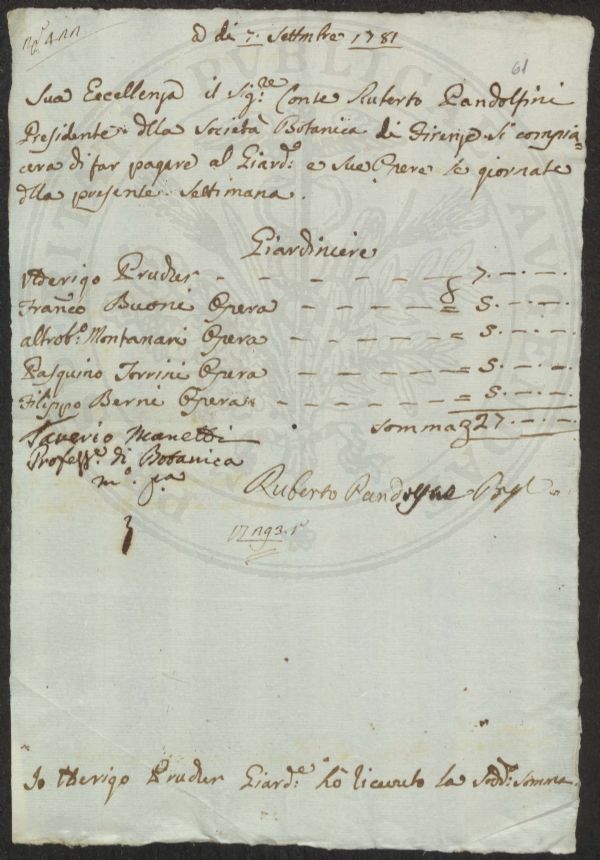 a di 7: Settmbre 1781
61
Sua Eccellenza il Sig:re Conte Ruberto Pandolfini
Presidente dlla Società Botanica di Firenze si compia=
cera di far pagare al Giard:e e sue Opere le giornate
dlla presente Settimana.
Giardiniere
Uderigo Prucker - - - - - - 7. - . - .
Franco Buoni Opera - - - - - = 5. - . - .
altrob:o Montanari Opera - - - - = 5. - . - .
Pasquino Torrini Opera - - - - = 5. - . - .
Filippo Berni Opera - - - - = 5. - . - .
Somma 27. - . - .
Saverio Manetti
Profess:e di Botanica
m:o p:a
Ruberto Pandolfini
Io Uderigo Prucker Giard:e hò riceuuto la Sodd:a Somma.